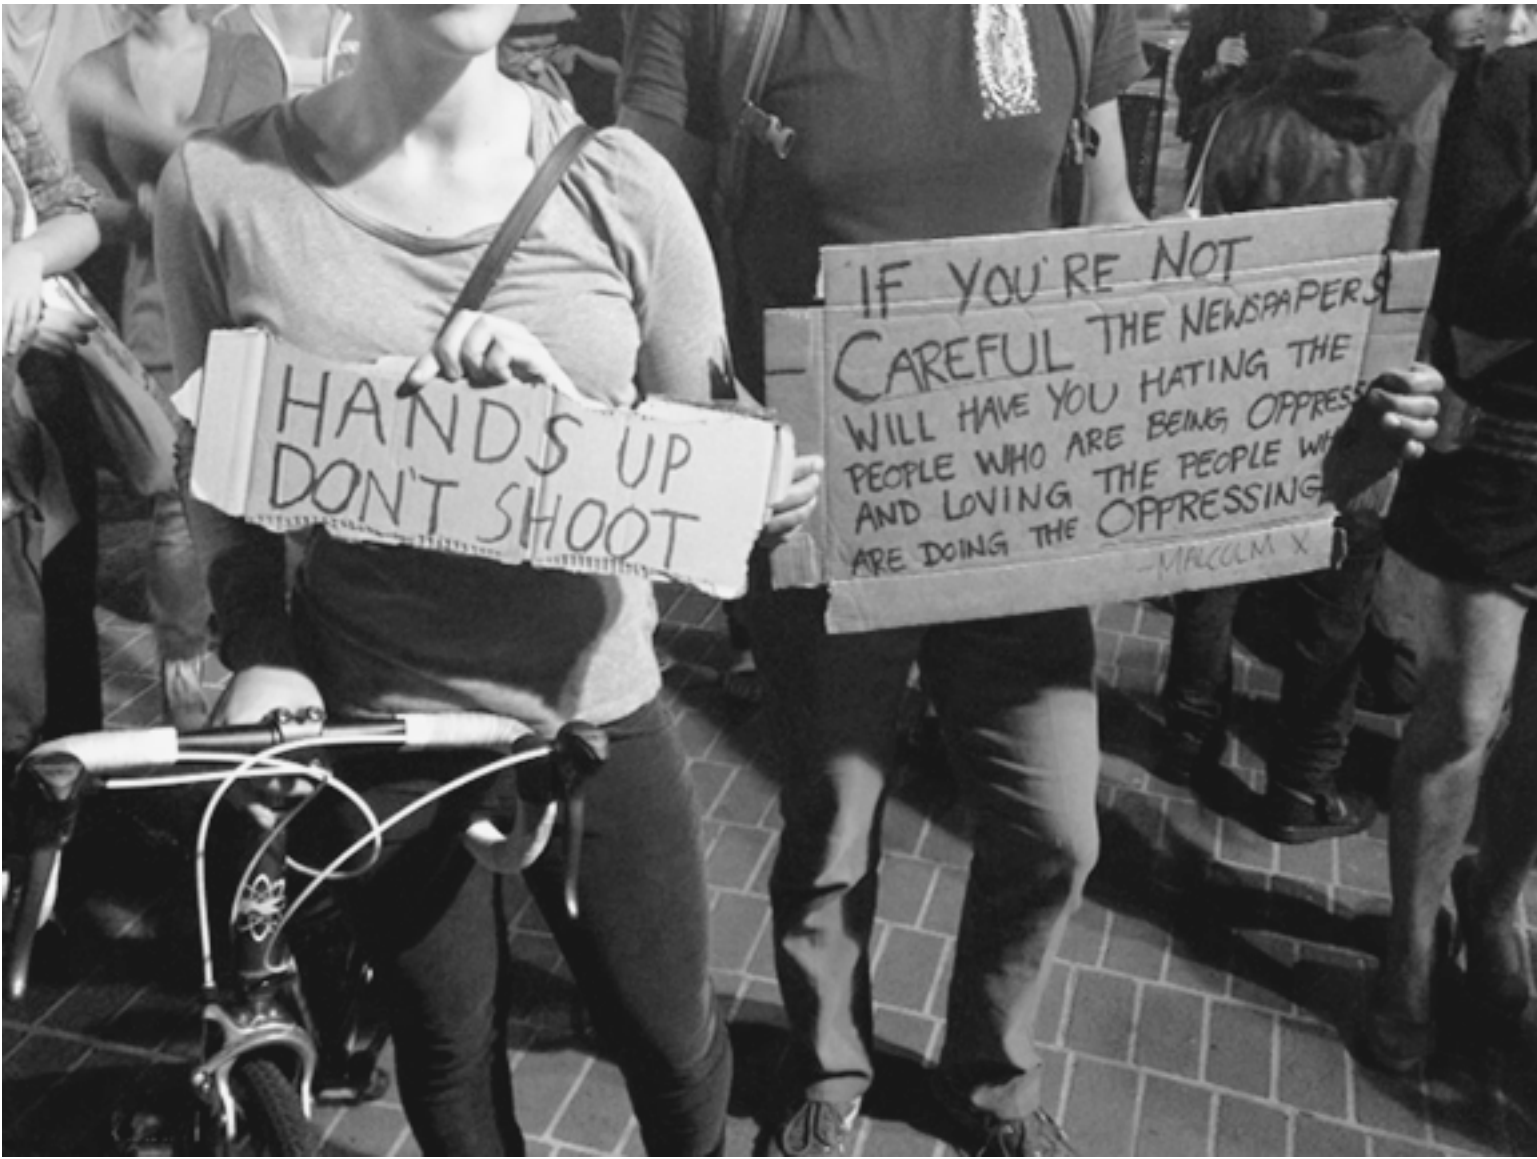 HANDS UP
DON'T SHOOT
"IF YOU'RE NOT
CAREFUL THE NEWSPAPERS
WILL HAVE YOU HATING THE
PEOPLE WHO ARE BEING OPPRESS
AND LOVING THE PEOPLE WH
ARE DOING THE OPPRESSING"
-MALCOLM X